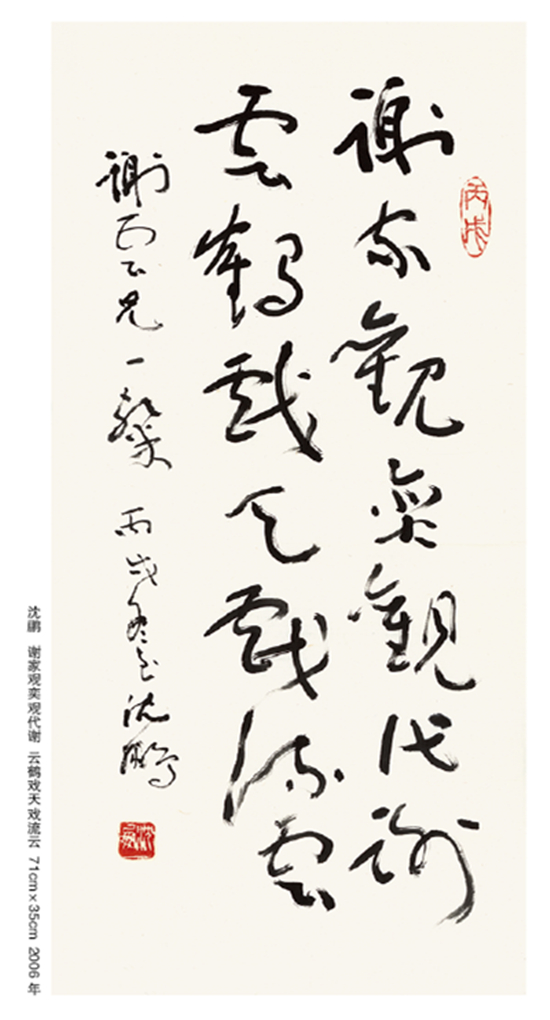 丙戌
謝家觀奕觀代謝
雲鶴戲天戲流雲
謝雲兄一粲 丙戌冬至沈鵬
沈鹏 谢家观奕观代谢 云鹤戏天戏流云 71cm×35cm 2006 年